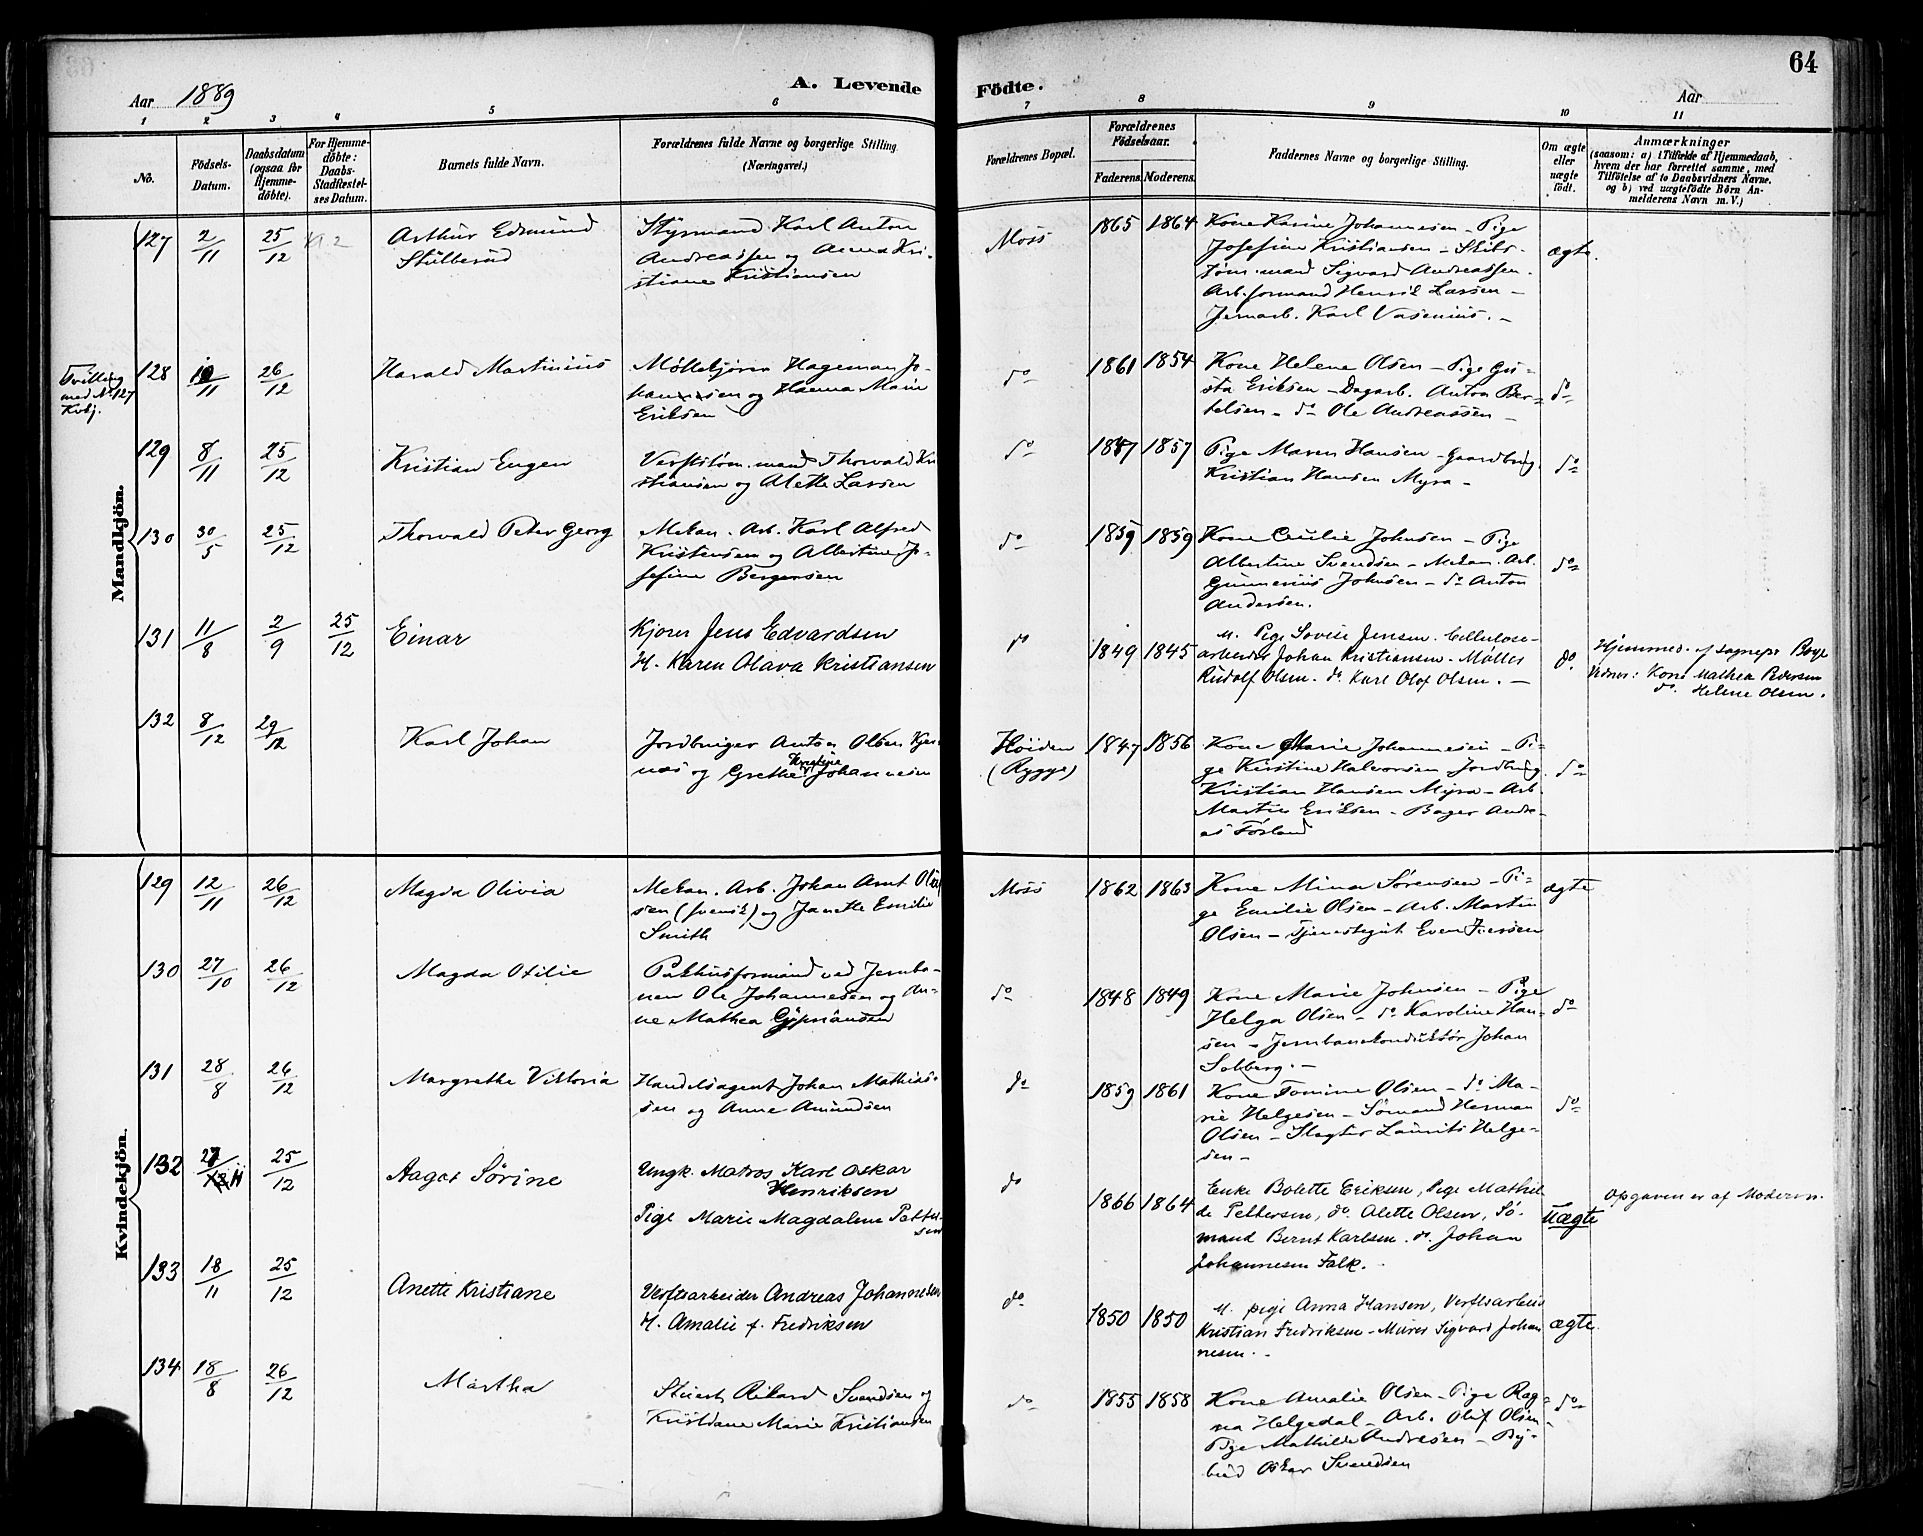 64
Aar 1889
A. Levende
Födte.
Aar
1 2 3 4 5 6 7 8 9 10 11
No.
Födsels-
Datum.
Daabsdatum
(ogsaa for
Hjemme-
döbte).
For Hjemme-
döbte:
Daabs-
Stadfæstel-
ses Datum.
Barnets fulde Navn.
Forældrenes fulde Navne og borgerlige Stilling
(Næringsvei.)
Forældrenes Bopæl.
Forældrenes
Födselsaar.
Faderens. Moderens.
Faddernes Navne og borgerlige Stilling.
Om ægte
eller
uægte
födt.
Anmærkninger
(saasom: a) i Tilfælde af Hjemmedaab,
hvem der har forrettet samme, med
Tilföielse af to Daabsvidners Navne,
og b) ved uægtefödte Börn An-
melderens Navn m. V.)
Mandkjön.
127 2/11 25/12 Kl 2
Arthur Edmund
Stulberud
Styrmand Karl Anton
Andreassen og Anna Kri-
stiane Kristiansen
Moss
1865 1864
Kone Karine Johannesen - Pige
Josefine Kristiansen - Skibs-
tøm.mand Sigvard Andreassen.
Arb.formand Henrik Larsen -
Jernarb. Karl Vasenius. -
ægte.
Tvilling
med No 127
Kvkj.
128 10/11 26/12
Harald Martinius
Møllekjører Hageman Jo-
hannesen og Hanna Marie
Eriksen
do
1861 1854
Kone Helene Olsen - Pige Gu-
sta Eriksen - Dagarb. Anton Ber-
telsen - do Ole Andreassen -
do
129 8/11 25/12
Kristian Eugen
Verftstøm.mand Thorvald Kri
stiansen og Alette Larsen
do
1857 1857
Pige Maren Hansen - Gaardbrug.
Kristian Hansen Myra -
do
130 30/5 25/12
Thorvald Peter Georg
Mekan. Arb. Karl Alfred
Kristensen og Albertine Jo-
sefine Bergersen
do
1859 1859
Kone Cecilie Johnsen - Pige
Albertine Svendsen - Mekan. Arb.
Gunnerius Johnsen - do Anton
Andersen.
do
131 11/8 2/9 25/12
Einar
Kjører Jens Edvardsen
H. Karen Olava Kristiansen
do
1849 1845
M. Pige Lovise Jensen. Cellulose-
arbeider Johan Kristiansen. Møller
Rudolf Olsen. do. Karl Olof Olsen. -
do.
Hjemmed. af sognepr Boye
Vidner: Kone Mathea Pedersen
do. Helene Olsen.
132 8/12 29/12
Karl Johan
Jordbruger Anton Olsen Kjer-
næs og Grethe Kristine Johannesen
Høiden
(Rygge)
1847 1856
Kone Marie Johannesen - Pi-
ge Kirstine Halvorsen - Jordbrug.
Kristian Hansen Myra - Arb.
Martin Eriksen - Bager Andre-
as Førland
do
Kvindekjön.
129 12/11 26/12
Magda Olivia
Mekan. Arb. Johan Arnt Olaf-
sen (svensk) og Janette Emilie
Smith
Moss
1862 1863
Kone Mina Sørensen - Pi-
ge Emilie Olsen - Arb. Martin
Olsen - Tjenestegut Even Iversen
ægte
130 27/10 26/12
Magda Otilie
Pakhusformand ved Jernba-
nen Ole Johannesen og An-
ne Mathea Cypriansen
do
1848 1849
Kone Marie Johnsen - Pige
Helga Olsen - do Karoline Han-
sen - Jernbanekonduktør Johan
Solberg. -
do
131 28/8 26/12
Margrethe Viktoria
Handelsagent Johan Mathias-
sen og Anne Amundsen
do
1859 1861
Kone Tomine Olsen - do Ma-
rie Helgesen - Sømand Herman
Olsen - Slagter Laurits Helge-
sen -
do
132 27/11 25/12
Aagot Sørine
Ungk. Matros Karl Oskar
Henriksen
Pige Marie Magdalene Petter-
sen
do
1866 1864
Enke Bolette Eriksen, Pige Mathil
de Pettersen, do. Alette Olsen, Sø-
mand Bernt Karlsen. do. Johan
Johannesen Falk. -
Uægte
Opgaven er af Moderen.
133 18/11 25/12
Anette Kristiane
Verftsarbeider Andreas Johannesen
H. Amalie f. Fredriksen
do
1850 1850
M. pige Anna Hansen, Verftsarbeid
Kristian Fredriksen - Murer Sigvard Johan
nesen. -
ægte.
134 18/8 26/12
Martha
Stuert Rikard Svendsen og
Kristiane Marie Kristiansen
do
1855 1858
Kone Amalie Olsen - Pige Rag-
na Helgedal - Arb. Oluf Olsen -
Pige Mathilde Andresen - By-
bud Oskar Svendsen
do